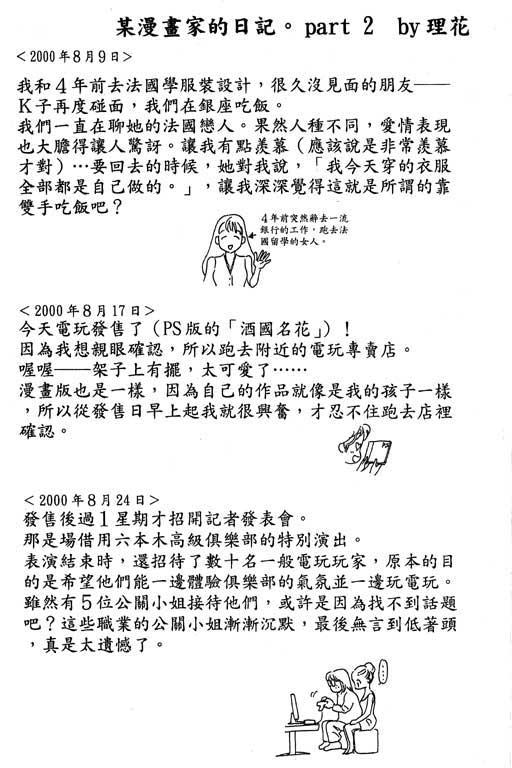 某漫畫家的日記。part 2　by理花
<2000年8月9日>
我和4年前去法國學服裝設計，很久沒見面的朋友──
K子再度碰面，我們在銀座吃飯。
我們一直在聊她的法國戀人。果然人種不同，愛情表現
也大膽得讓人驚訝。讓我有點羨慕（應該說是非常羨慕
才對）…要回去的時候，她對我說，「我今天穿的衣服
全部都是自己做的。」，讓我深深覺得這就是所謂的靠
雙手吃飯吧？
4年前突然辭去一流
銀行的工作，跑去法
國留學的女人。
<2000年8月17日>
今天電玩發售了（PS版的「酒國名花」）！
因為我想親眼確認，所以跑去附近的電玩專賣店。
喔喔──架子上有擺，太可愛了……
漫畫版也是一樣，因為自己的作品就像是我的孩子一樣
，所以從發售日早上起我就很興奮，才忍不住跑去店裡
確認。
<2000年8月24日>
發售後過1星期才招開記者發表會。
那是場借用六本木高級俱樂部的特別演出。
表演結束時，還招待了數十名一般電玩玩家，原本的目
的是希望他們能一邊體驗俱樂部的氣氛並一邊玩電玩。
雖然有5位公關小姐接待他們，或許是因為找不到話題
吧？這些職業的公關小姐漸漸沉默，最後無言到低著頭
，真是太遺憾了。
…